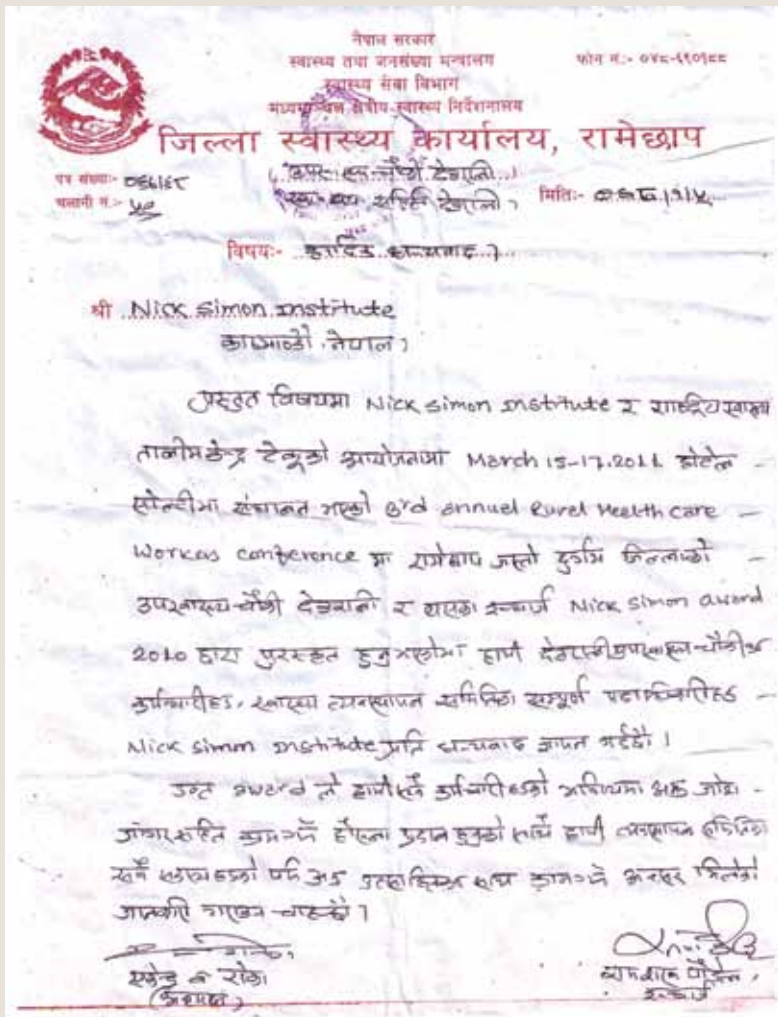 नेपाल सरकार
स्वास्थ्य तथा जनसंख्या मन्त्रालय
फोन नं.:- ०४८-६९०१८८
स्वास्थ्य सेवा विभाग
मध्यमाञ्चल क्षेत्रीय स्वास्थ्य निर्देशनालय
जिल्ला स्वास्थ्य कार्यालय, रामेछाप
पत्र संख्याः- ०६७/६८
चलानी नं.:-
मितिः-
विषयः- हार्दिक धन्यवाद ।
श्री Nick Simon Institute
काठमाडौं, नेपाल ।
प्रस्तुत विषयमा Nick Simon Institute र राष्ट्रिय स्वास्थ्य
तालीम केन्द्र टेकुको आयोजनामा March 15-17.2011 होटेल
संचालन भएको 3rd annual Rural Health care
Workers conference मा रामेछाप जस्तो दुर्गम जिल्लाको
उपस्वास्थ्य चौकी देउराली र यसका इन्चार्ज Nick Simon award
2010 द्वारा पुरस्कृत हुनुभएकोमा हामी देउराली उपस्वास्थ्य चौकीका
कर्मचारीहरु, स्वास्थ्य व्यवस्थापन समितिका सम्पूर्ण पदाधिकारीहरु
Nick Simon Institute प्रति धन्यवाद ज्ञापन गर्दछौं ।
उक्त award ले हामी सबै कर्मचारीहरुको भविष्यमा अझ जोश
जाँगर सहित काम गर्ने हौसला प्रदान हुनुको साथै हामी व्यवस्थापन समितिका
सबै सदस्यहरुको पनि अझ उत्साहित साथ काम गर्ने अवसर मिलेको
जानकारी गराउन चाहन्छौं ।
(अध्यक्ष)
इन्चार्ज